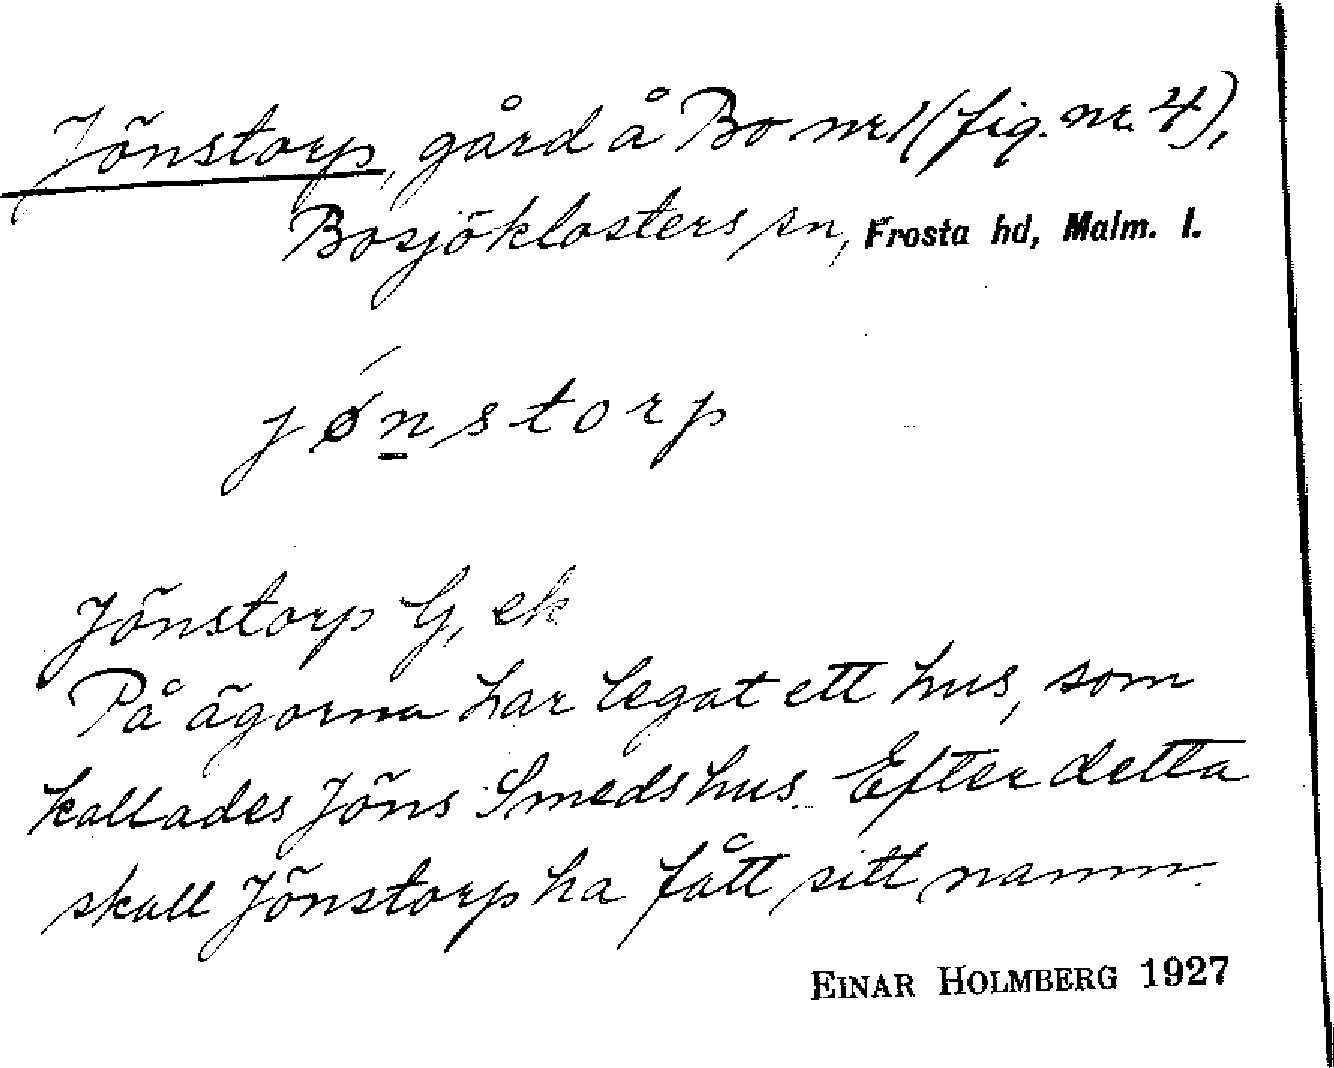 Jönstorp, gård å Bo nr 1 (fig. nr. 4),
Bosjöklosters sn, Frosta hd, Malm. l.
jǿn̲storp
Jönstorp G, ek
På ägorna har legat ett hus, som
kallades Jöns Smeds hus. Efter detta
skall Jönstorp ha fått sitt namn.
EINAR HOLMBERG 1927